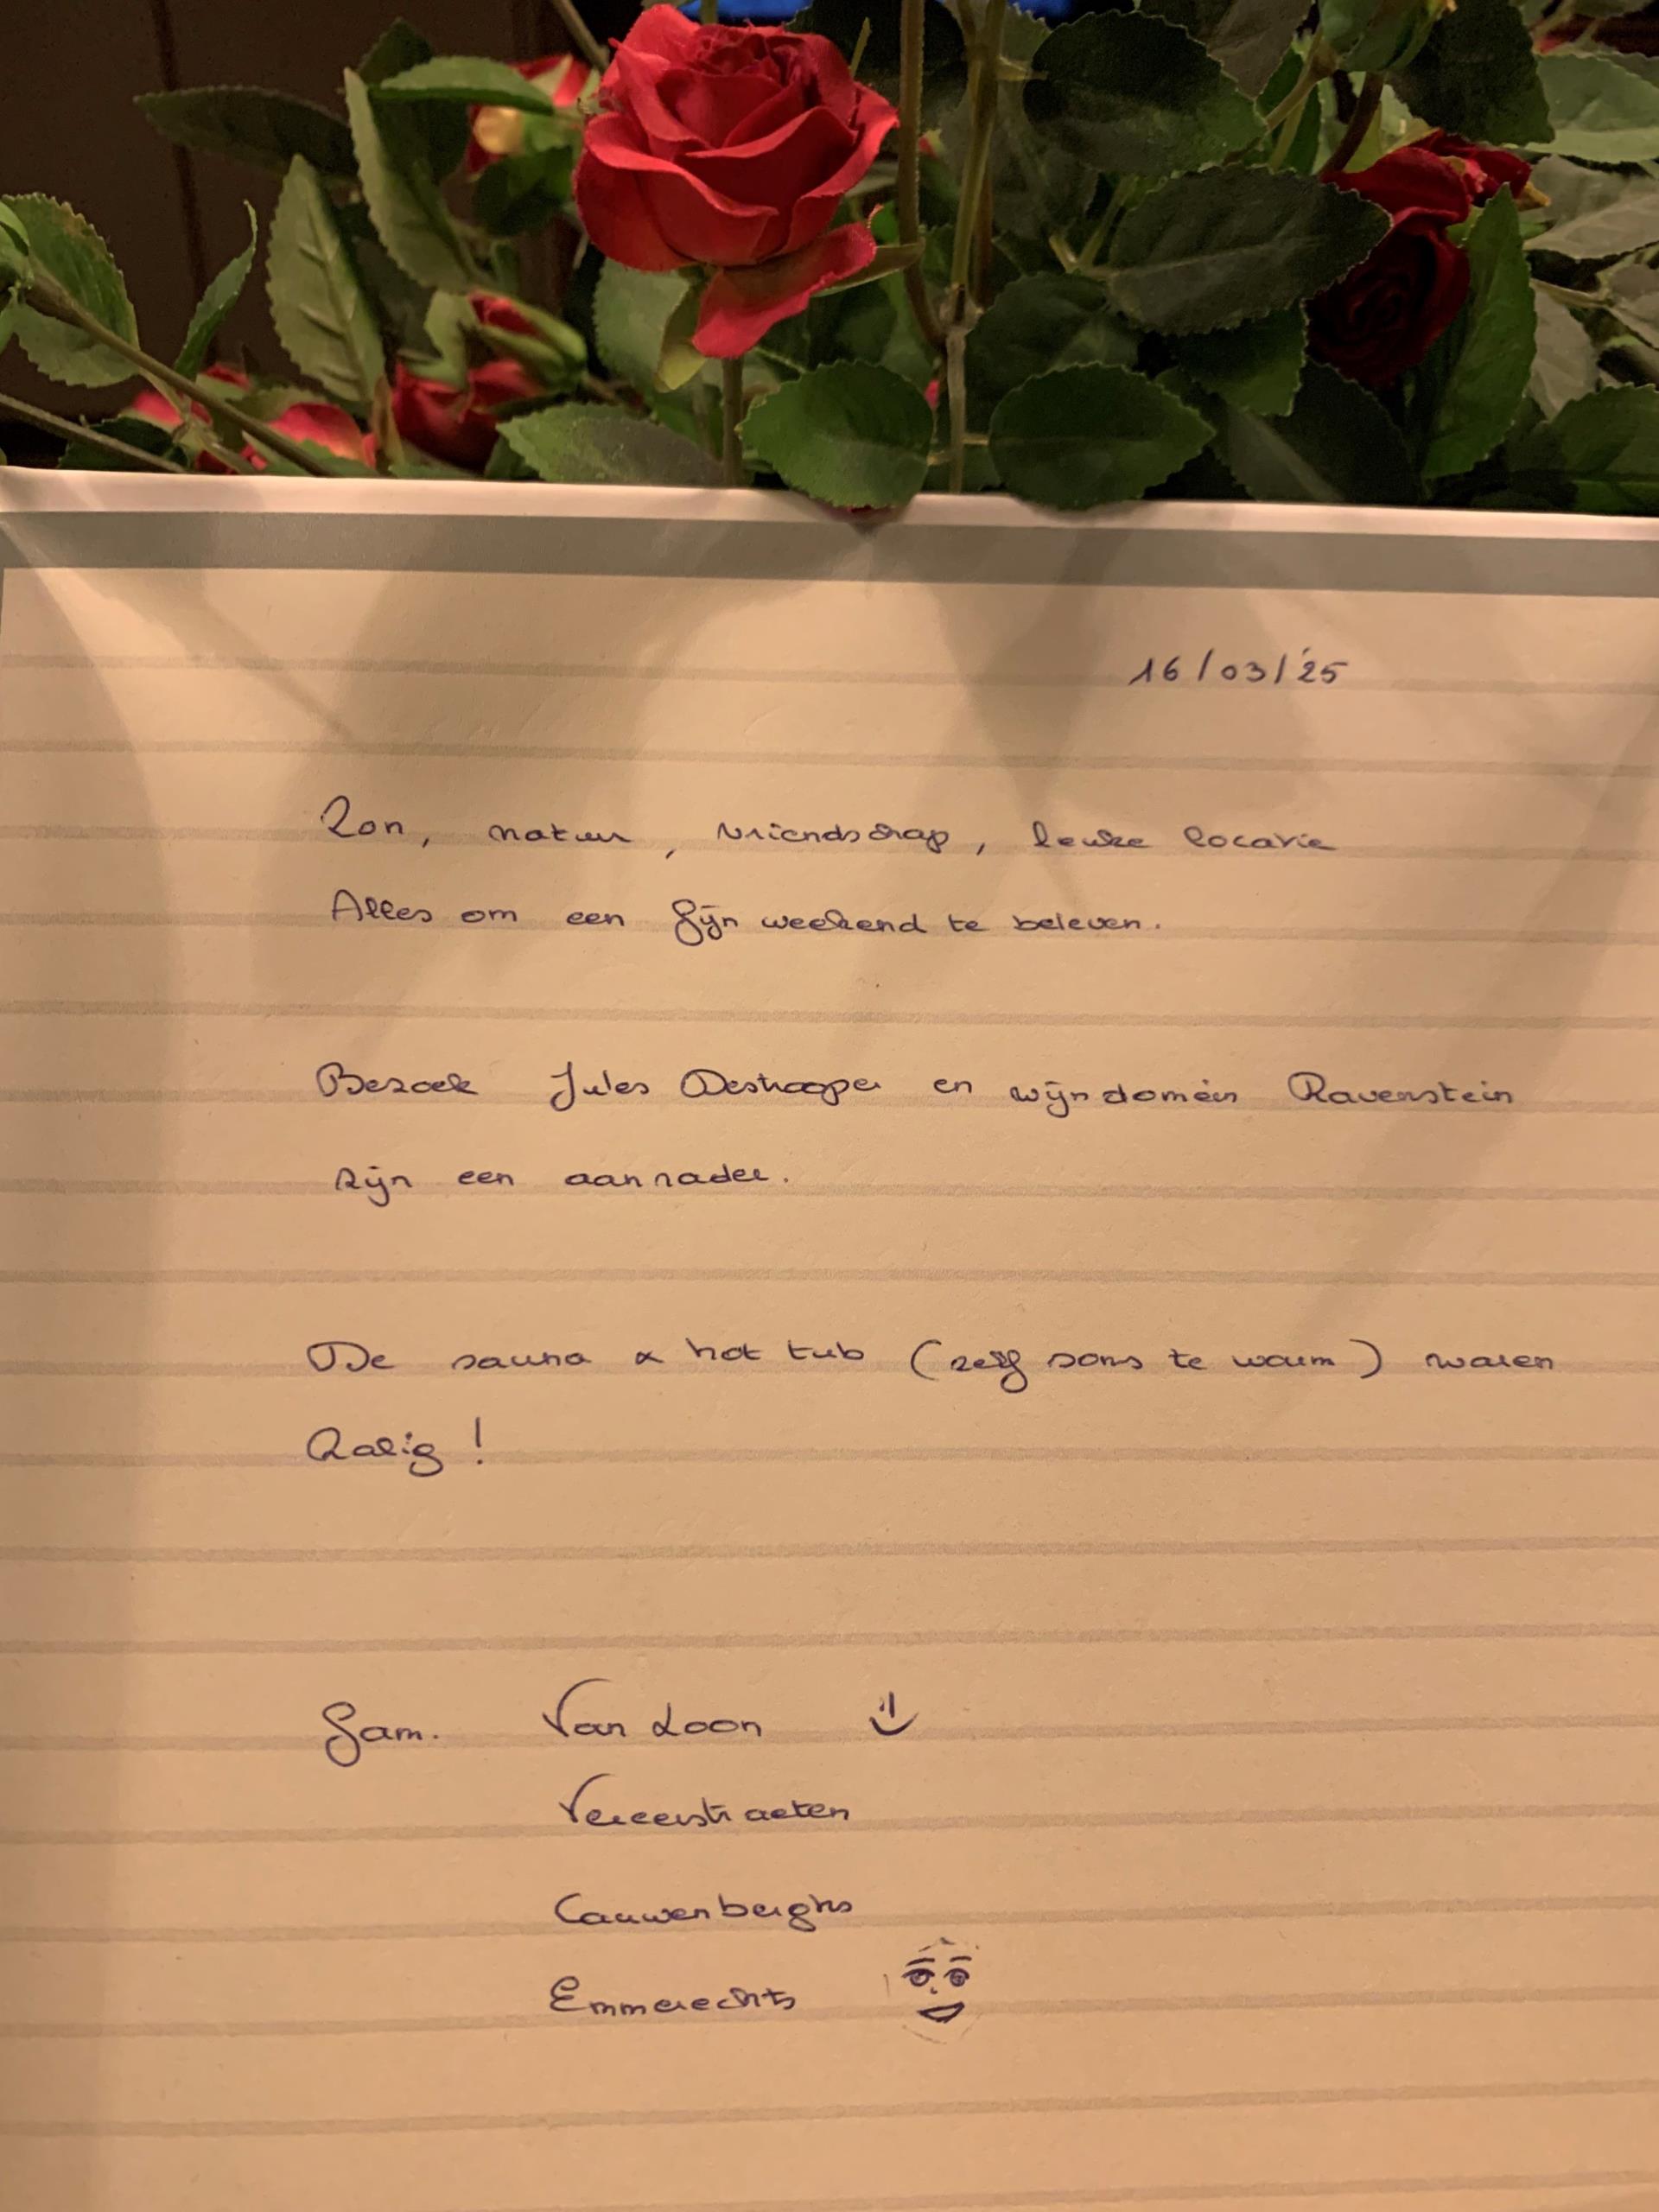 16/03/'25
Zon, natuur, vriendschap, leuke locatie
Alles om een fijn weekend te beleven.
Bezoek Jules Destrooper en wijndomein Ravenstein
zijn een aanrader.
De sauna & hot tub (zelf soms te warm) waren
Zalig!
Fam. Van Loon
Vereerstraeten
Cauwenberghs
Emmerechts